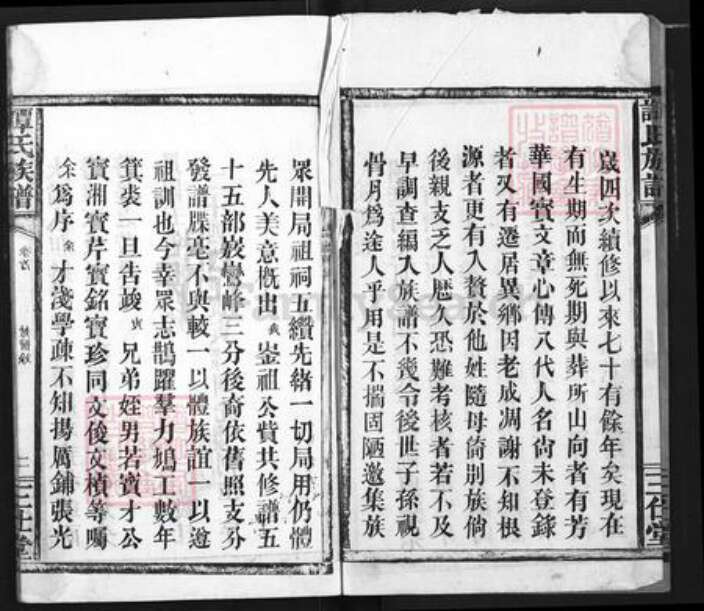 歲四次續修以來七十有餘年矣現在
有生期而無死期與葬所山向者有芳
華國寶文章心傳八代人名尚未登錄
者又有遷居異鄉因老成凋謝不知根
源者更有入贅於他姓隨母倚別族倘
後親支乏人歷久恐難考核者若不及
早調查編入族譜不幾令後世子孫視
骨月為途人乎用是不揣固陋邀集族
眾開局祖祠五纘先緒一切局用仍體
先人美意慨出我崟祖公貲共修譜五
十五部嶽鸞峰三分後裔依舊照支分
發譜牒毫不與較一以體族誼一以遵
祖訓也今幸眾志鵲躍羣力鳩工數年
箕裘一旦告竣寅兄弟姪男若寶才公
寶湘寶芹寶銘寶珍同文俊文楨等囑
余為序余才淺學疎不知揚厲鋪張光
譚氏族譜
三仕堂
譚氏族譜
三仕堂